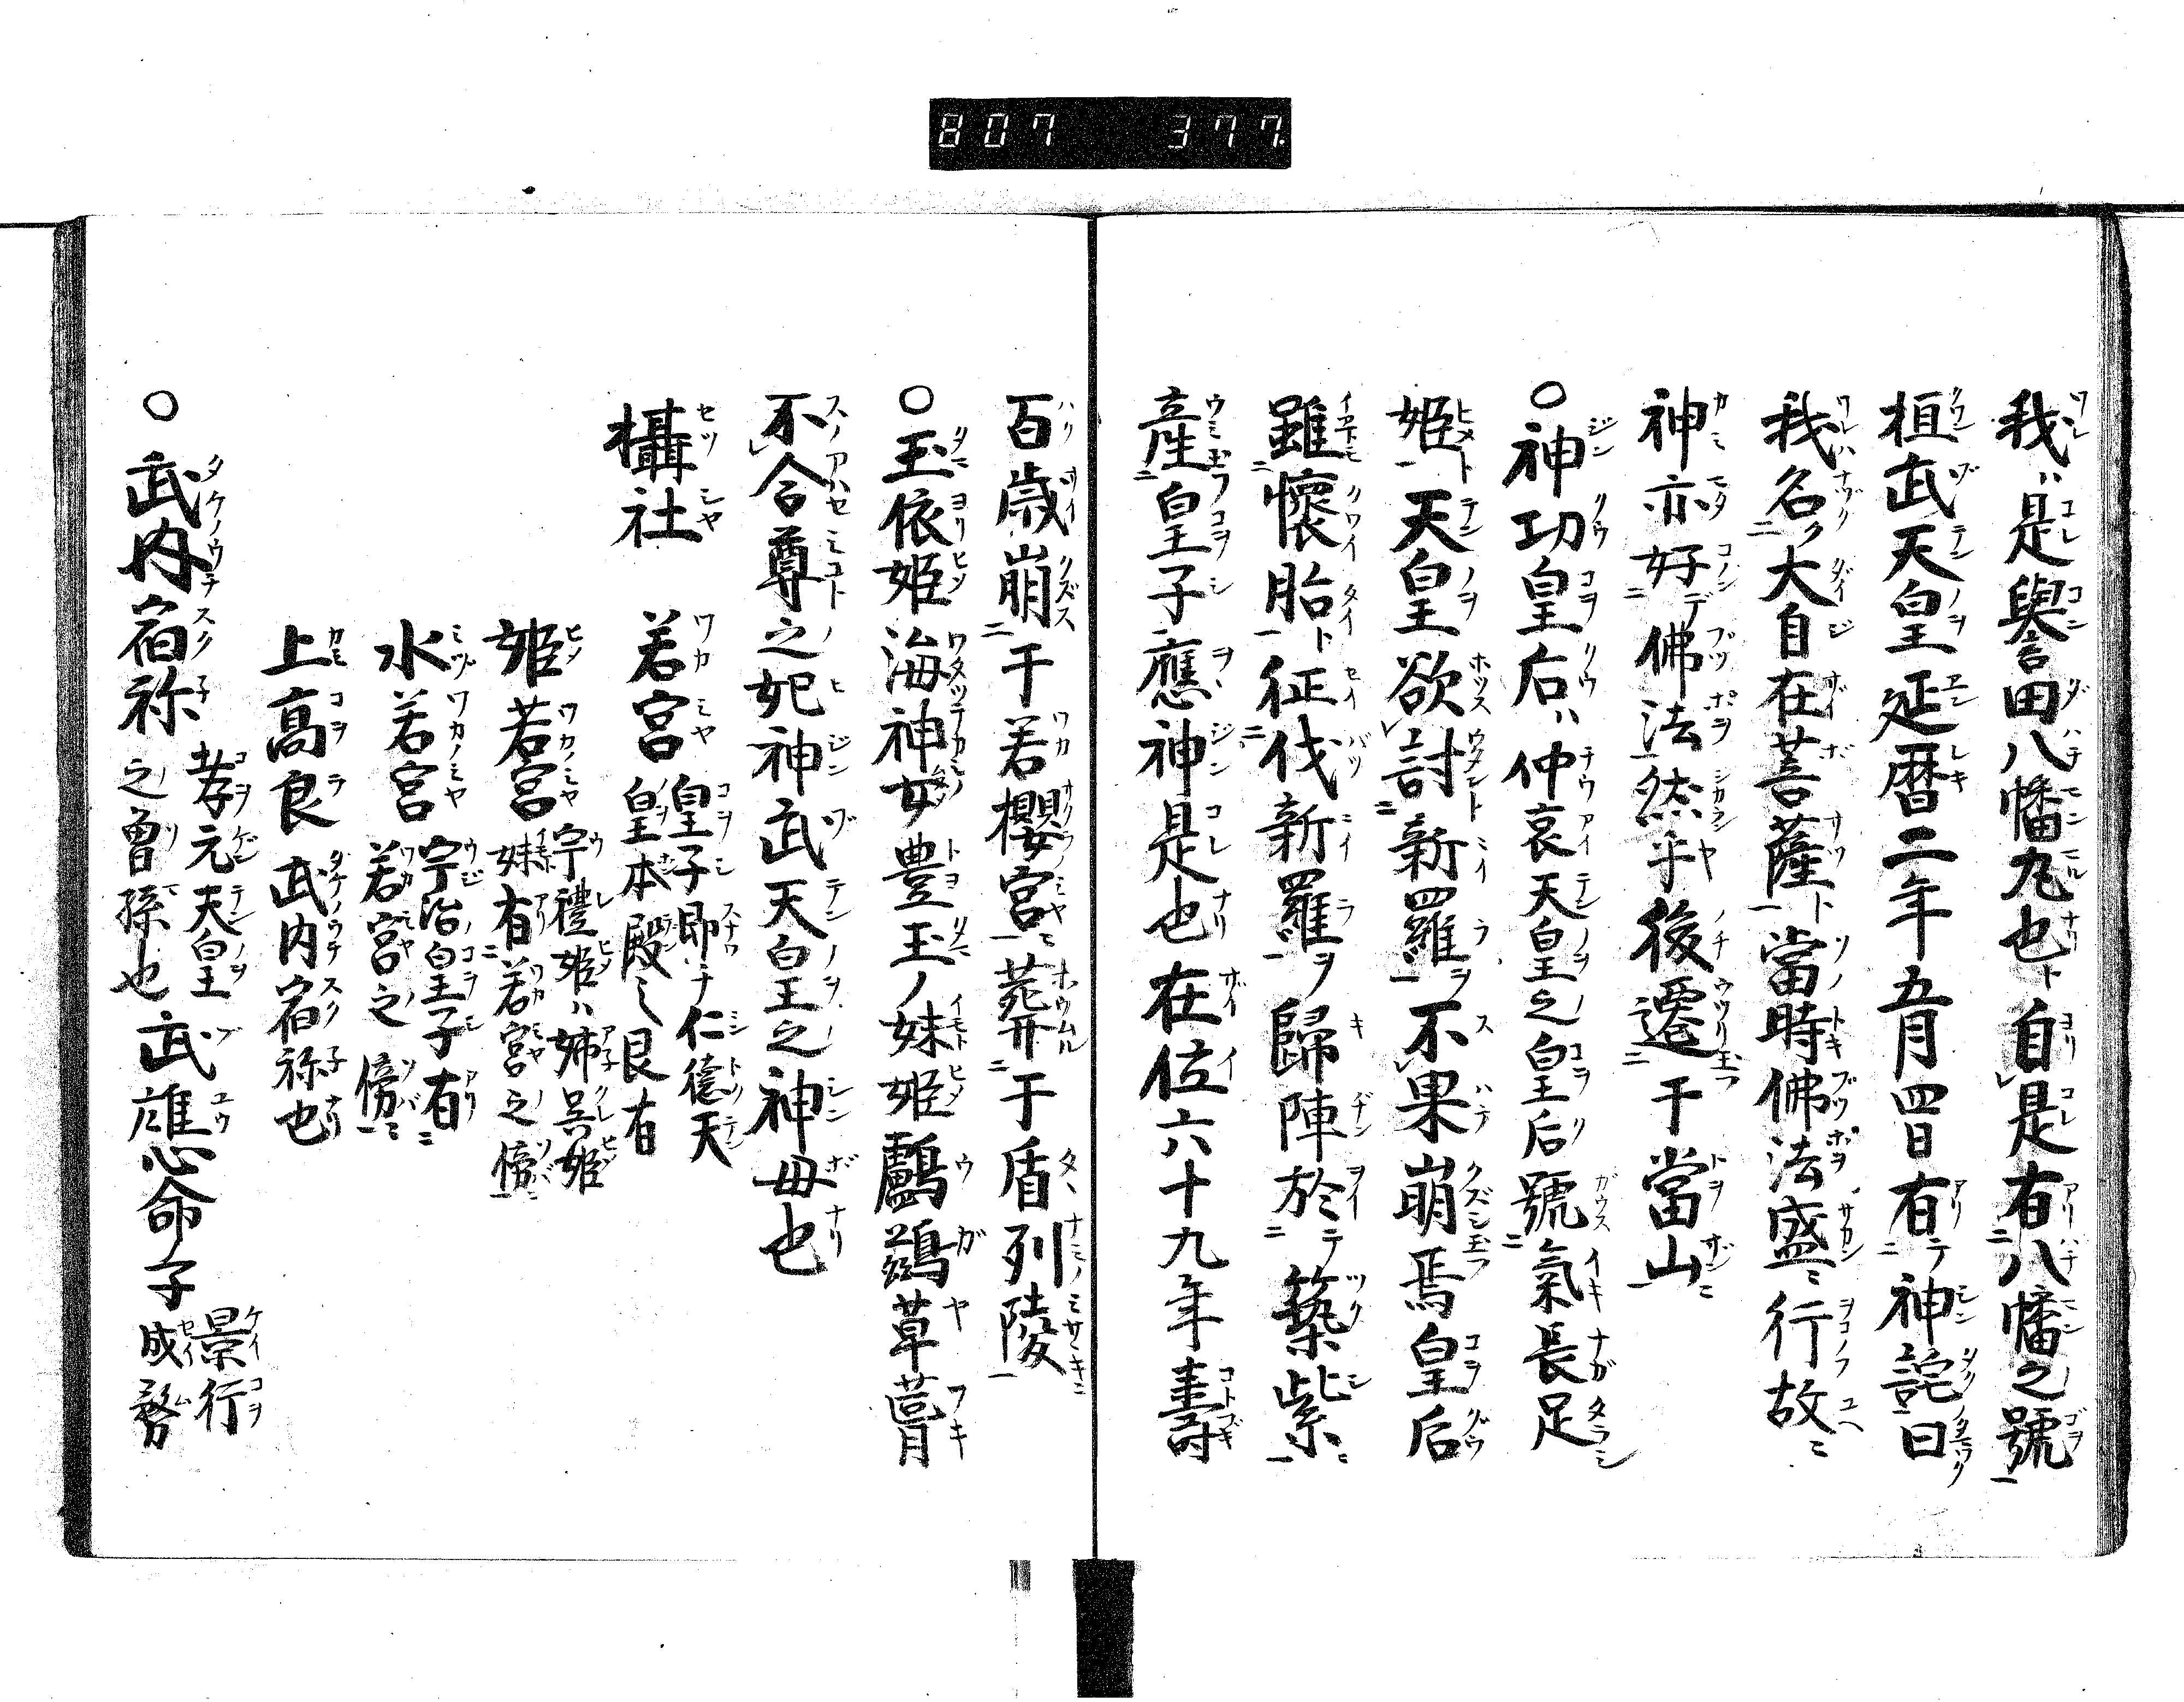 807 377.
我ハ是譽田八幡丸也ト自是有八幡之號
桓武天皇延暦二年五月四日有テ神託曰
我名ク大自在菩薩ト當時佛法盛ニ行故ニ
神亦好デ佛法然乎後遷于當山ニ
○神功皇后ハ仲哀天皇之皇后號氣長足
姫ト天皇欲討新羅ヲ不果崩焉皇后
雖懷胎ト征伐新羅ヲ歸陣於テ築紫ニ
産皇子應神是也在位六十九年壽
百歳崩于若櫻宮ニ葬于盾列陵
○玉依姫海神女豊玉ノ妹姫鸕鷀草葺
不合尊之妃神武天皇之神母也
攝社 若宮 皇子即チ仁德天
皇本殿之艮有
姫若宮 宇禮姫ハ姉呉姫
妹有若宮之傍ニ
水若宮 宇治皇子有ニ
若宮之傍ニ
上高良 武内宿祢也
○武内宿祢 孝元天皇
之曾孫也 武雄心命子 景行
成務